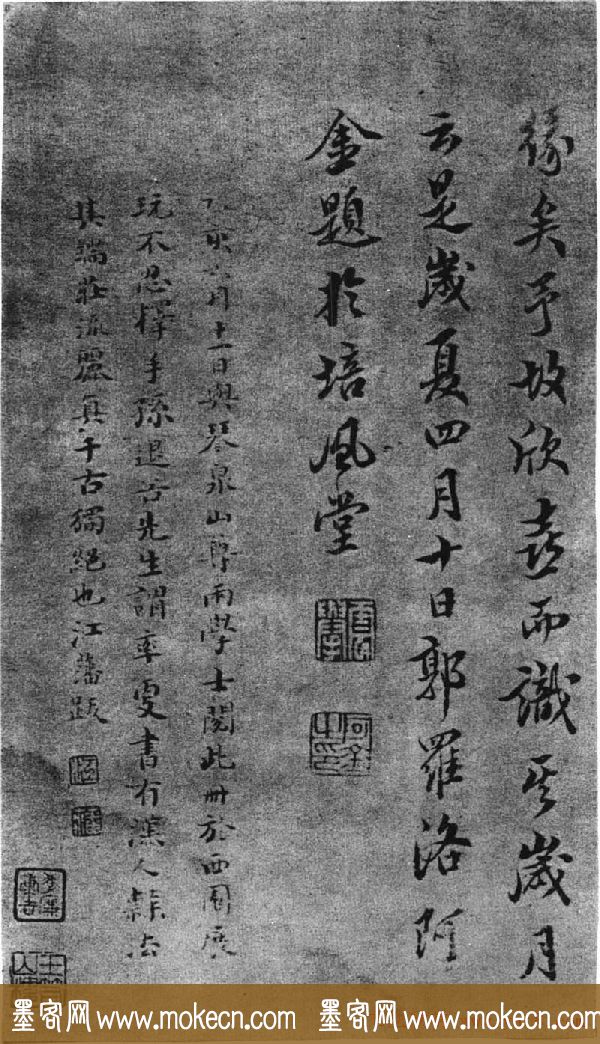 缘矣予故欣喜而識其歲月
云是歲夏四月十日郭羅洛阿
金題於培風堂
乙亥六月十一日與琴泉山尊兩學士閱此册於西園展
玩不忍擇手孫退谷先生謂率更書有漢人隸法
其端莊流麗真千古獨絕也江藩跋
墨客网 www.mokecn.com 墨客网 www.mokecn.com